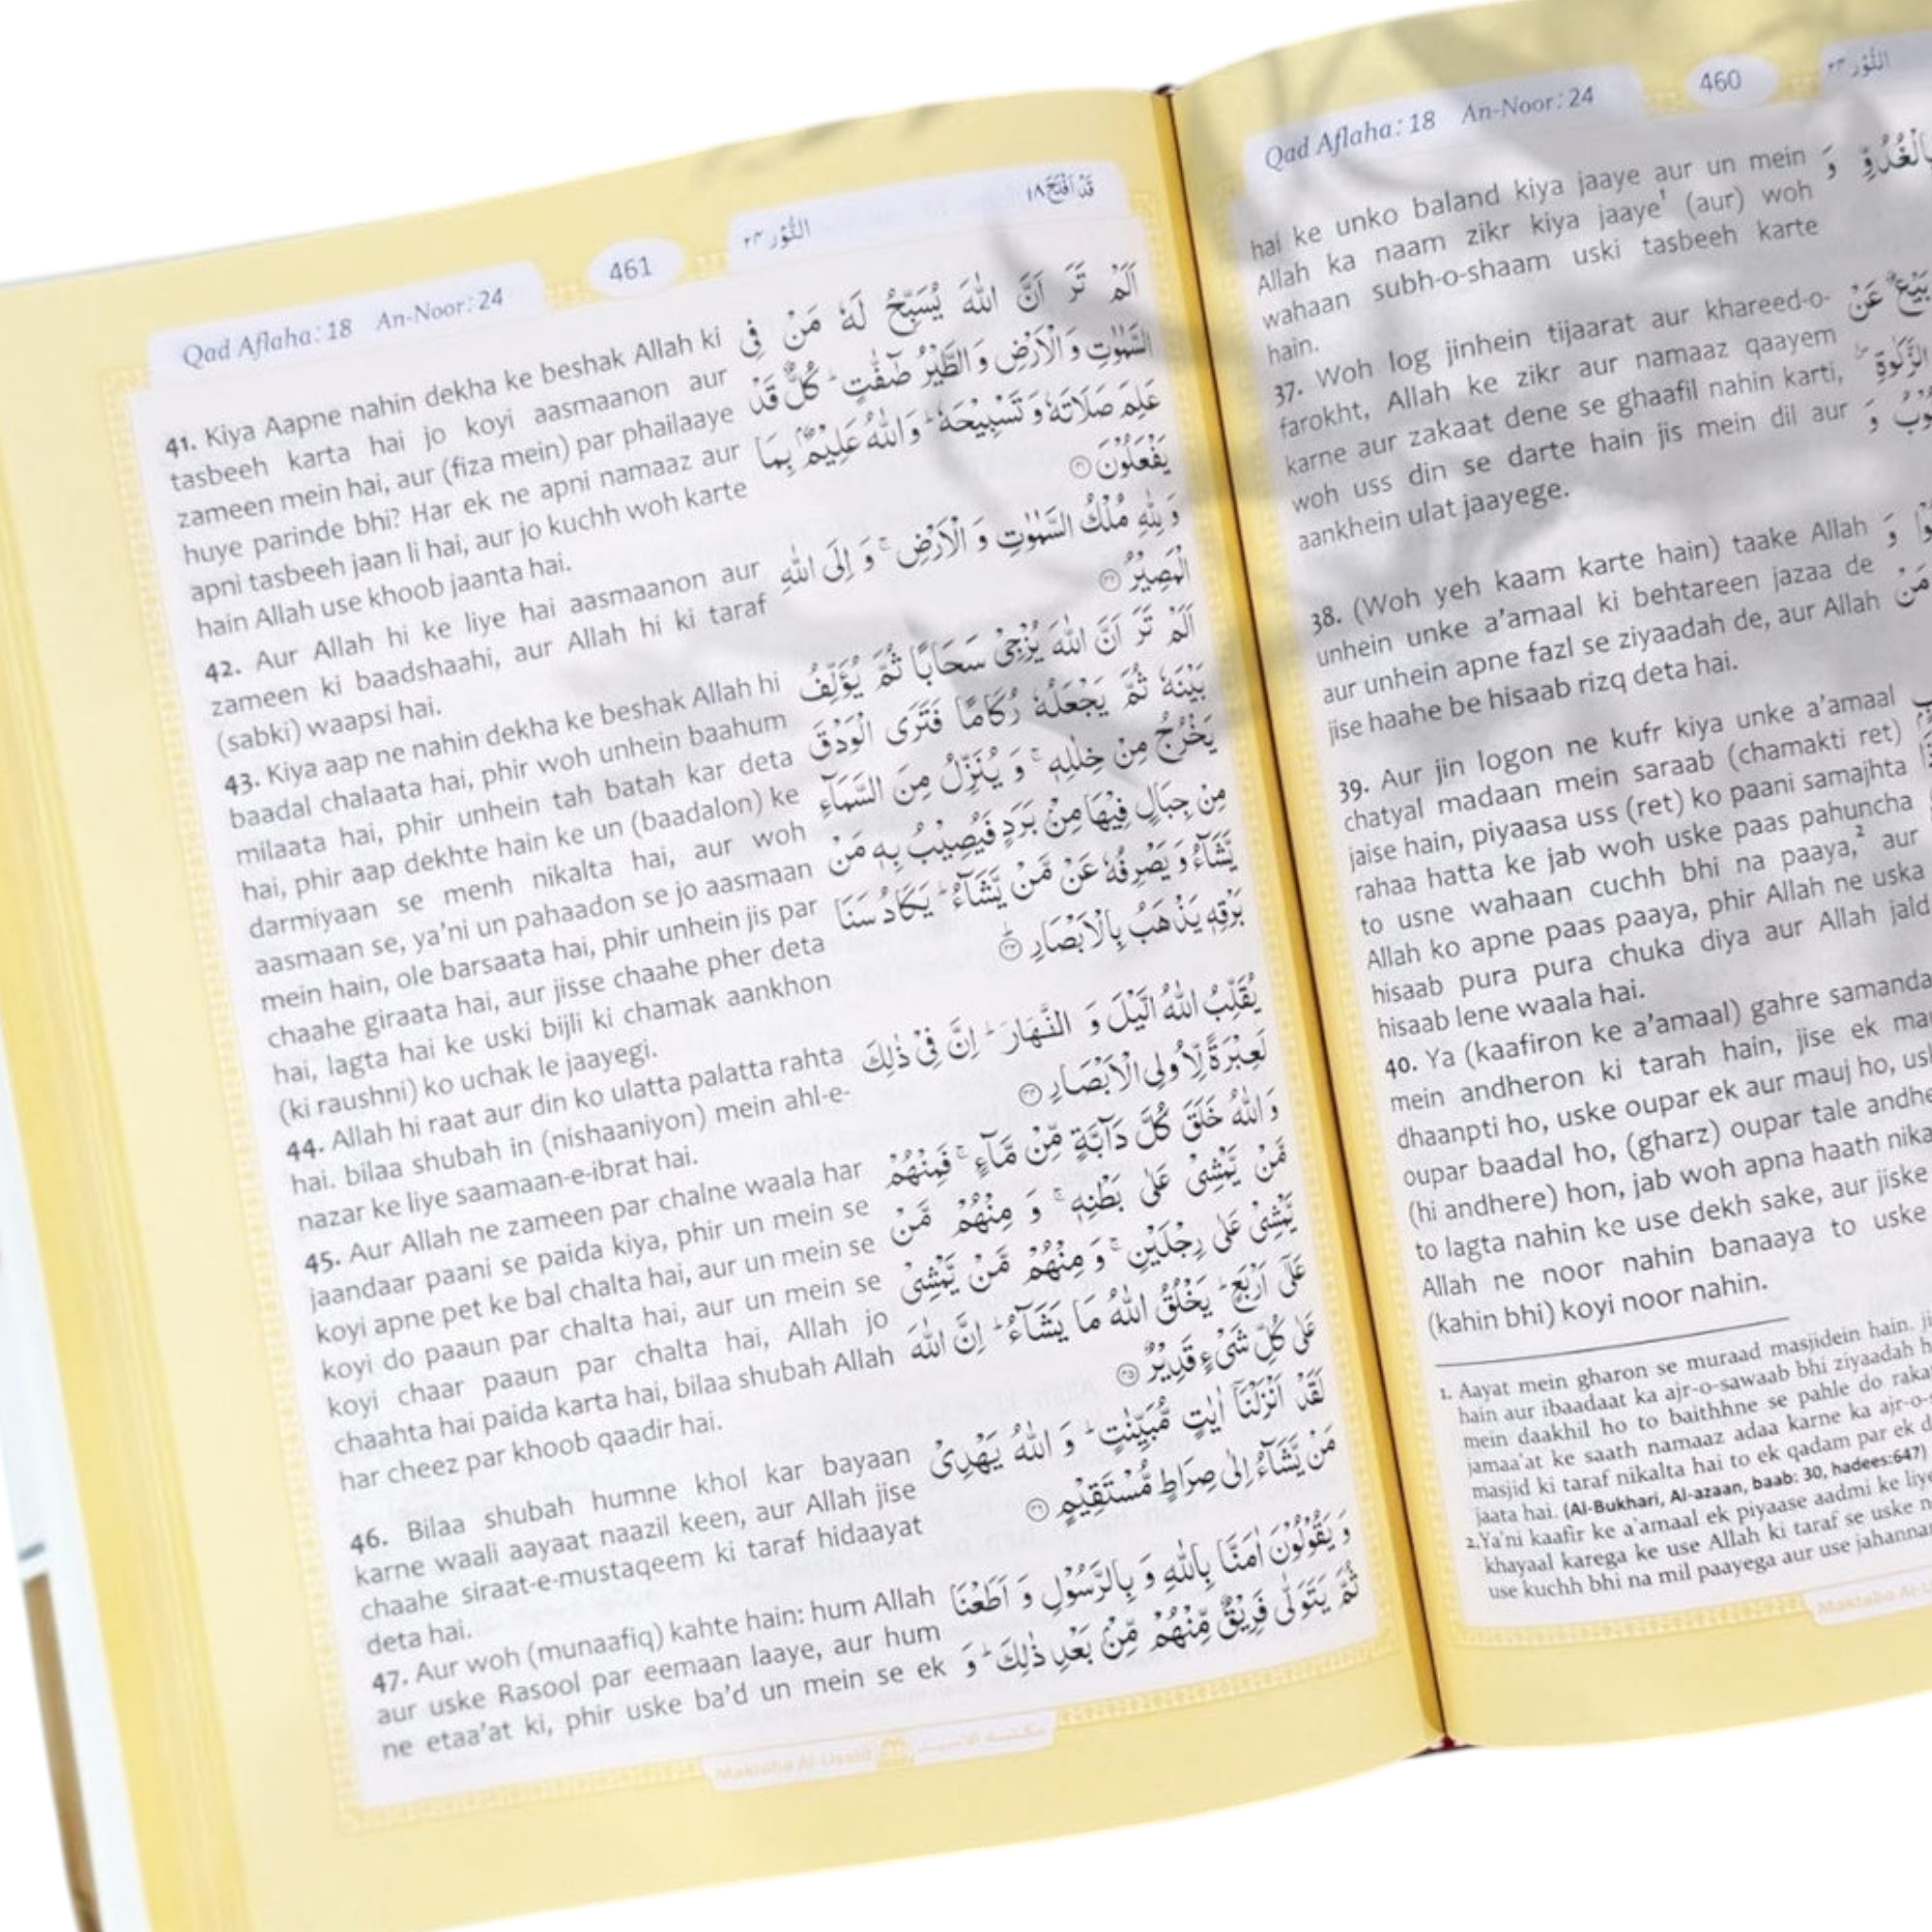 Qad Aflaha: 18 An-Noor: 24
460
النُّوْر ٢٣
hai ke unko baland kiya jaaye aur un mein
Allah ka naam zikr kiya jaaye¹ (aur) woh
wahaan subh-o-shaam uski tasbeeh karte
hain.
37. Woh log jinhein tijaarat aur khareed-o-
farokht, Allah ke zikr aur namaaz qaayem
karne aur zakaat dene se ghaafil nahin karti,
woh uss din se darte hain jis mein dil aur
aankhein ulat jaayege.
38. (Woh yeh kaam karte hain) taake Allah
unhein unke a'amaal ki behtareen jazaa de
aur unhein apne fazl se ziyaadah de, aur Allah
jise haahe be hisaab rizq deta hai.
39. Aur jin logon ne kufr kiya unke a'amaal
chatyal madaan mein saraab (chamakti ret)
jaise hain, piyaasa uss (ret) ko paani samajhta
rahaa hatta ke jab woh uske paas pahuncha
to usne wahaan cuchh bhi na paaya,² aur
Allah ko apne paas paaya, phir Allah ne uska
hisaab pura pura chuka diya aur Allah jald
hisaab lene waala hai.
40. Ya (kaafiron ke a'amaal) gahre
mein andheron ki tarah hain, jise ek
dhaanpti ho, uske oupar ek aur mauj ho,
oupar baadal ho, (gharz) oupar tale
(hi andhere) hon, jab woh apna haath
to lagta nahin ke use dekh sake, aur jiske
Allah ne noor nahin banaaya to uske
(kahin bhi) koyi noor nahin.
وَ
بَيْعٌ عَنْ
الزَّكٰوةِ
وَ
وَ
مَنْ
1. Aayat mein gharon se muraad masjidein hain.
hain aur ibaadaat ka ajr-o-sawaab bhi ziyaadah
mein daakhil ho to baithhne se pahle do
jamaa'at ke saath namaaz adaa karne ka
masjid ki taraf nikalta hai to ek qadam par ek
jaata hai. (Al-Bukhari, Al-azaan, baab: 30, hadees:647)
2.Ya'ni kaafir ke a'amaal ek piyaase aadmi ke
khayaal karega ke use Allah ki taraf se uske
use kuchh bhi na mil paayega aur use
Qad Aflaha: 18 An-Noor: 24
461
النُّوْر ٢٣
قَدْ اَفْلَحَ ١٨
41. Kiya Aapne nahin dekha ke beshak Allah ki
tasbeeh karta hai jo koyi aasmaanon aur
zameen mein hai, aur (fiza mein) par phailaaye
huye parinde bhi? Har ek ne apni namaaz aur
apni tasbeeh jaan li hai, aur jo kuchh woh karte
hain Allah use khoob jaanta hai.
42. Aur Allah hi ke liye hai aasmaanon aur
zameen ki baadshaahi, aur Allah hi ki taraf
(sabki) waapsi hai.
43. Kiya aap ne nahin dekha ke beshak Allah hi
baadal chalaata hai, phir woh unhein baahum
milaata hai, phir unhein tah batah kar deta
hai, phir aap dekhte hain ke un (baadalon) ke
darmiyaan se menh nikalta hai, aur woh
aasmaan se, ya'ni un pahaadon se jo aasmaan
mein hain, ole barsaata hai, phir unhein jis par
chaahe giraata hai, aur jisse chaahe pher deta
hai, lagta hai ke uski bijli ki chamak aankhon
(ki raushni) ko uchak le jaayegi.
44. Allah hi raat aur din ko ulatta palatta rahta
hai. bilaa shubah in (nishaaniyon) mein ahl-e-
nazar ke liye saamaan-e-ibrat hai.
45. Aur Allah ne zameen par chalne waala har
jaandaar paani se paida kiya, phir un mein se
koyi apne pet ke bal chalta hai, aur un mein se
koyi do paaun par chalta hai, aur un mein se
koyi chaar paaun par chalta hai, Allah jo
chaahta hai paida karta hai, bilaa shubah Allah
har cheez par khoob qaadir hai.
46. Bilaa shubah humne khol kar bayaan
karne waali aayaat naazil keen, aur Allah jise
chaahe siraat-e-mustaqeem ki taraf hidaayat
deta hai.
47. Aur woh (munaafiq) kahte hain: hum Allah
aur uske Rasool par eemaan laaye, aur hum
ne etaa'at ki, phir uske ba'd un mein se ek
اَلَمْ تَرَ اَنَّ اللّٰهَ يُسَبِّحُ لَهٗ مَنْ فِى
السَّمٰوٰتِ وَ الْاَرْضِ وَ الطَّيْرُ صٰٓفّٰتٍ ؕ كُلٌّ قَدْ
عَلِمَ صَلَاتَهٗ وَ تَسْبِيْحَهٗ ؕ وَ اللّٰهُ عَلِيْمٌۢ بِمَا
يَفْعَلُوْنَ ۝٤١
وَ لِلّٰهِ مُلْكُ السَّمٰوٰتِ وَ الْاَرْضِ ۚ وَ اِلَى اللّٰهِ
الْمَصِيْرُ ۝٤٢
اَلَمْ تَرَ اَنَّ اللّٰهَ يُزْجِىْ سَحَابًا ثُمَّ يُؤَلِّفُ
بَيْنَهٗ ثُمَّ يَجْعَلُهٗ رُكَامًا فَتَرَى الْوَدْقَ
يَخْرُجُ مِنْ خِلٰلِهٖ ۚ وَ يُنَزِّلُ مِنَ السَّمَآءِ
مِنْ جِبَالٍ فِيْهَا مِنْۢ بَرَدٍ فَيُصِيْبُ بِهٖ مَنْ
يَّشَآءُ وَ يَصْرِفُهٗ عَنْ مَّنْ يَّشَآءُ ؕ يَكَادُ سَنَا
بَرْقِهٖ يَذْهَبُ بِالْاَبْصَارِ ۝٤٣
يُقَلِّبُ اللّٰهُ الَّيْلَ وَ النَّهَارَ ؕ اِنَّ فِىْ ذٰلِكَ
لَعِبْرَةً لِّاُولِى الْاَبْصَارِ ۝٤٤
وَ اللّٰهُ خَلَقَ كُلَّ دَآبَّةٍ مِّنْ مَّآءٍ ۚ فَمِنْهُمْ
مَّنْ يَّمْشِىْ عَلٰى بَطْنِهٖ ۚ وَ مِنْهُمْ مَّنْ
يَّمْشِىْ عَلٰى رِجْلَيْنِ ۚ وَ مِنْهُمْ مَّنْ يَّمْشِىْ
عَلٰٓى اَرْبَعٍ ؕ يَخْلُقُ اللّٰهُ مَا يَشَآءُ ؕ اِنَّ اللّٰهَ
عَلٰى كُلِّ شَىْءٍ قَدِيْرٌ ۝٤٥
لَقَدْ اَنْزَلْنَاۤ اٰيٰتٍ مُّبَيِّنٰتٍ ؕ وَ اللّٰهُ يَهْدِىْ
مَنْ يَّشَآءُ اِلٰى صِرَاطٍ مُّسْتَقِيْمٍ ۝٤٦
وَ يَقُوْلُوْنَ اٰمَنَّا بِاللّٰهِ وَ بِالرَّسُوْلِ وَ اَطَعْنَا
ثُمَّ يَتَوَلّٰى فَرِيْقٌ مِّنْهُمْ مِّنْۢ بَعْدِ ذٰلِكَ ؕ وَ